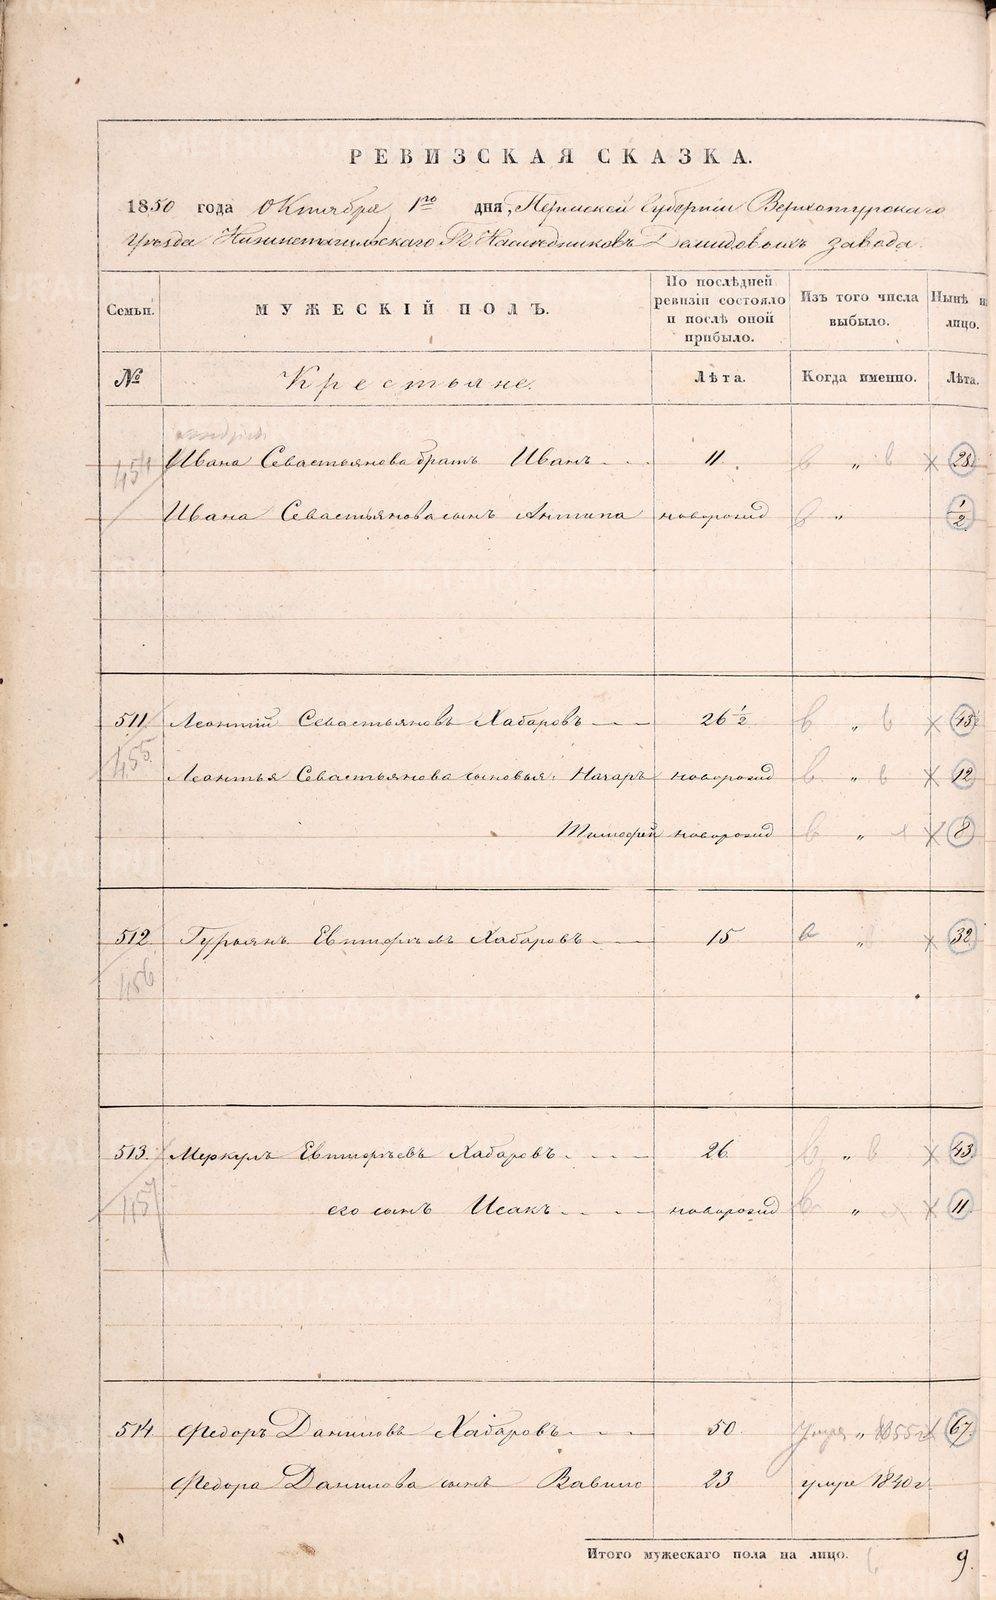 РЕВИЗСКАЯ СКАЗКА.
1850 года Октября 1го дня, Пермской Губернии Верхотурского
Уезда Нижнетагильского Гг Наследниковъ Демидовыхъ завода.
Семьи. МУЖЕСКІЙ ПОЛЪ. По послѣдней ревизіи состояло и послѣ оной прибыло. Изъ того числа выбыло. Нынѣ н лицо.
№ Крестьяне. Лѣта. Когда именно. Лѣта.
454 Ивана Севастьянова братъ Иванъ 11. „ 28
Ивана Севастьянова сынъ Антипа новорожд „ 1/2
511 Леонтій Севастьяновъ Хабаровъ 26 1/2 „ 43
455
Леонтья Севастьянова сыновья: Назаръ новорожд „ 12
Тимофей новорожд „ 8
512. Гурьянъ Евтифѣевъ Хабаровъ 15 „ 32
456
513. Меркулъ Евтифѣевъ Хабаровъ 26 „ 43
457 его сынъ Исакъ новорожд „ 11
514 Федоръ Даниловъ Хабаровъ 50. умре „ 1855 г 67
Федора Данилова сынъ Вавило 23 умре 1840 г.
Итого мужескаго пола на лицо. 9.
METRIKI.GASO-URAL.RU